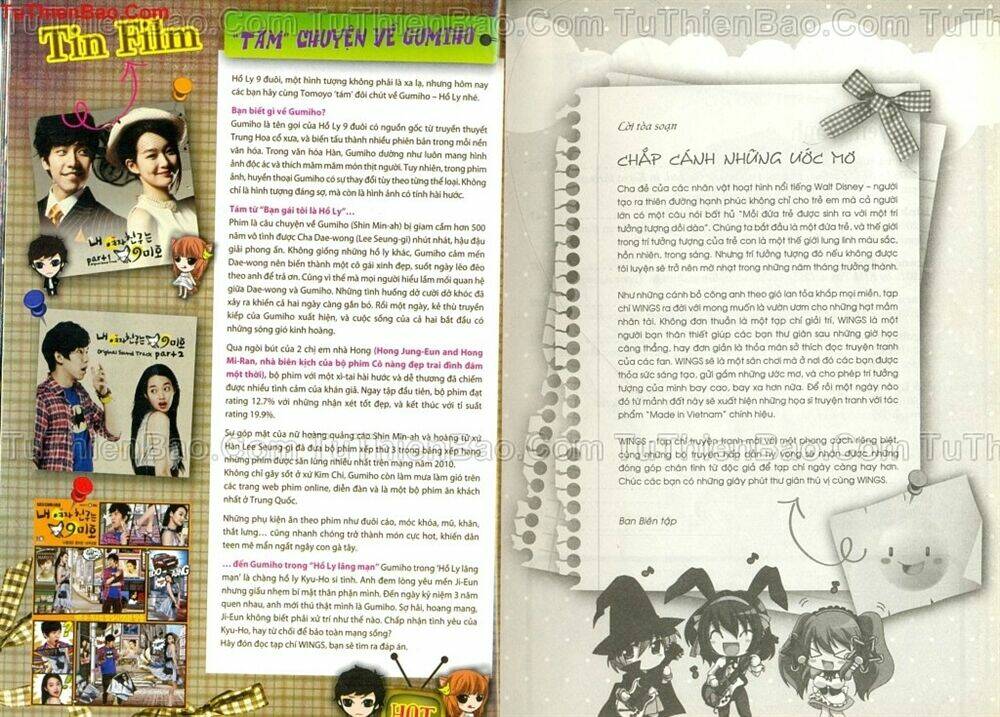 TuThienBao.Com TuThienBao.Com TuThienBao.Com TuThienBao.Com
TuThienBao.Com
Tin Film
"TÁM" CHUYỆN VỀ GUMIHO
Hồ Ly 9 đuôi, một hình tượng không phải là xa lạ, nhưng hôm nay
các bạn hãy cùng Tomoyo 'tám' đôi chút về Gumiho – Hồ Ly nhé.
Bạn biết gì về Gumiho?
Gumiho là tên gọi của Hồ Ly 9 đuôi có nguồn gốc từ truyền thuyết
Trung Hoa cổ xưa, và biến tấu thành nhiều phiên bản trong mỗi nền
văn hóa. Trong văn hóa Hàn, Gumiho dường như luôn mang hình
ảnh độc ác và thích măm măm món thịt người. Tuy nhiên, trong phim
ảnh, huyền thoại Gumiho có sự thay đổi tùy theo từng thể loại. Không
chỉ là hình tượng đáng sợ, mà còn là hình ảnh có tính hài hước.
Tám từ "Bạn gái tôi là Hồ Ly"...
Phim là câu chuyện về Gumiho (Shin Min-ah) bị giam cầm hơn 500
năm vô tình được Cha Dae-wong (Lee Seung-gi) nhút nhát, hậu đậu
giải phong ấn. Không giống những hồ ly khác, Gumiho cảm mến
Dae-wong nên biến thành một cô gái xinh đẹp, suốt ngày lẽo đẽo
theo anh để trả ơn. Cũng vì thế mà mọi người hiểu lầm mối quan hệ
giữa Dae-wong và Gumiho. Những tình huống dở cười dở khóc đã
xảy ra khiến cả hai ngày càng gắn bó. Rồi một ngày, kẻ thù truyền
kiếp của Gumiho xuất hiện, và cuộc sống của cả hai bắt đầu có
những sóng gió kinh hoàng.
Qua ngòi bút của 2 chị em nhà Hong (Hong Jung-Eun and Hong
Mi-Ran, nhà biên kịch của bộ phim Cô nàng đẹp trai đình đám
một thời), bộ phim với một xì-tai hài hước và dễ thương đã chiếm
được nhiều tình cảm của khán giả. Ngay tập đầu tiên, bộ phim đạt
rating 12.7% với những nhận xét tốt đẹp, và kết thúc với tỉ suất
rating 19.9%.
Sự góp mặt của nữ hoàng quảng cáo Shin Min-ah và hoàng tử xứ
Hàn Lee Seung-gi đã đưa bộ phim xếp thứ 3 trong bảng xếp hạng
những phim được săn lùng nhiều nhất trên mạng năm 2010.
Không chỉ gây sốt ở xứ Kim Chi, Gumiho còn làm mưa làm gió trên
các trang web phim online, diễn đàn và là một bộ phim ăn khách
nhất ở Trung Quốc.
Những phụ kiện ăn theo phim như đuôi cáo, móc khóa, mũ, khăn,
thắt lưng... cũng nhanh chóng trở thành món cực hot, khiến dân
teen mê mẩn ngất ngây con gà tây.
... đến Gumiho trong "Hồ Ly lãng mạn" Gumiho trong 'Hồ Ly lãng
mạn' là chàng hồ ly Kyu-Ho si tình. Anh đem lòng yêu mến Ji-Eun
nhưng giấu nhẹm bí mật thân phận mình. Đến ngày kỷ niệm 3 năm
quen nhau, anh mới thú thật mình là Gumiho. Sợ hãi, hoang mang,
Ji-Eun không biết phải xử trí như thế nào. Chấp nhận tình yêu của
Kyu-Ho, hay từ chối để bảo toàn mạng sống?
Hãy đón đọc tạp chí WINGS, bạn sẽ tìm ra đáp án.
내 여자친구는
part1 구미호
내 여자친구는
Original Sound Track part2
9미호
내 여자친구는
9미호
HOT
Lời tòa soạn
CHẮP CÁNH NHỮNG ƯỚC MƠ
Cha đẻ của các nhân vật hoạt hình nổi tiếng Walt Disney – người
tạo ra thiên đường hạnh phúc không chỉ cho trẻ em mà cả người
lớn có một câu nói bất hủ "Mỗi đứa trẻ được sinh ra với một trí
tưởng tượng dồi dào". Chúng ta bắt đầu là một đứa trẻ, và thế giới
trong trí tưởng tượng của trẻ con là một thế giới lung linh màu sắc,
hồn nhiên, trong sáng. Nhưng trí tưởng tượng đó nếu không được
tôi luyện sẽ trở nên mờ nhạt trong những năm tháng trưởng thành.
Như những cánh bồ công anh theo gió lan tỏa khắp mọi miền, tạp
chí WINGS ra đời với mong muốn là vườn ươm cho những hạt mầm
nhân tài. Không đơn thuần là một tạp chí giải trí, WINGS là một
người bạn thân thiết giúp các bạn thư giãn sau những giờ học
căng thẳng, hay đơn giản là thỏa mãn sở thích đọc truyện tranh
của các fan. WINGS sẽ là một sân chơi mà ở nơi đó các bạn được
thỏa sức sáng tạo, gửi gắm những ước mơ, và cho phép trí tưởng
tượng của mình bay cao, bay xa hơn nữa. Để rồi một ngày nào
đó từ mảnh đất này sẽ xuất hiện những họa sĩ truyện tranh với tác
phẩm "Made in Vietnam" chính hiệu.
WINGS – tạp chí truyện tranh mới với một phong cách riêng biệt,
cùng những bộ truyện hấp dẫn hy vọng sẽ nhận được những
đóng góp chân tình từ độc giả để tạp chí ngày càng hay hơn.
Chúc các bạn có những giây phút thư giãn thú vị cùng WINGS.
Ban Biên tập
TuThienBao.Com TuThienBao.Com TuThienBao.Com TuThienBao.Com